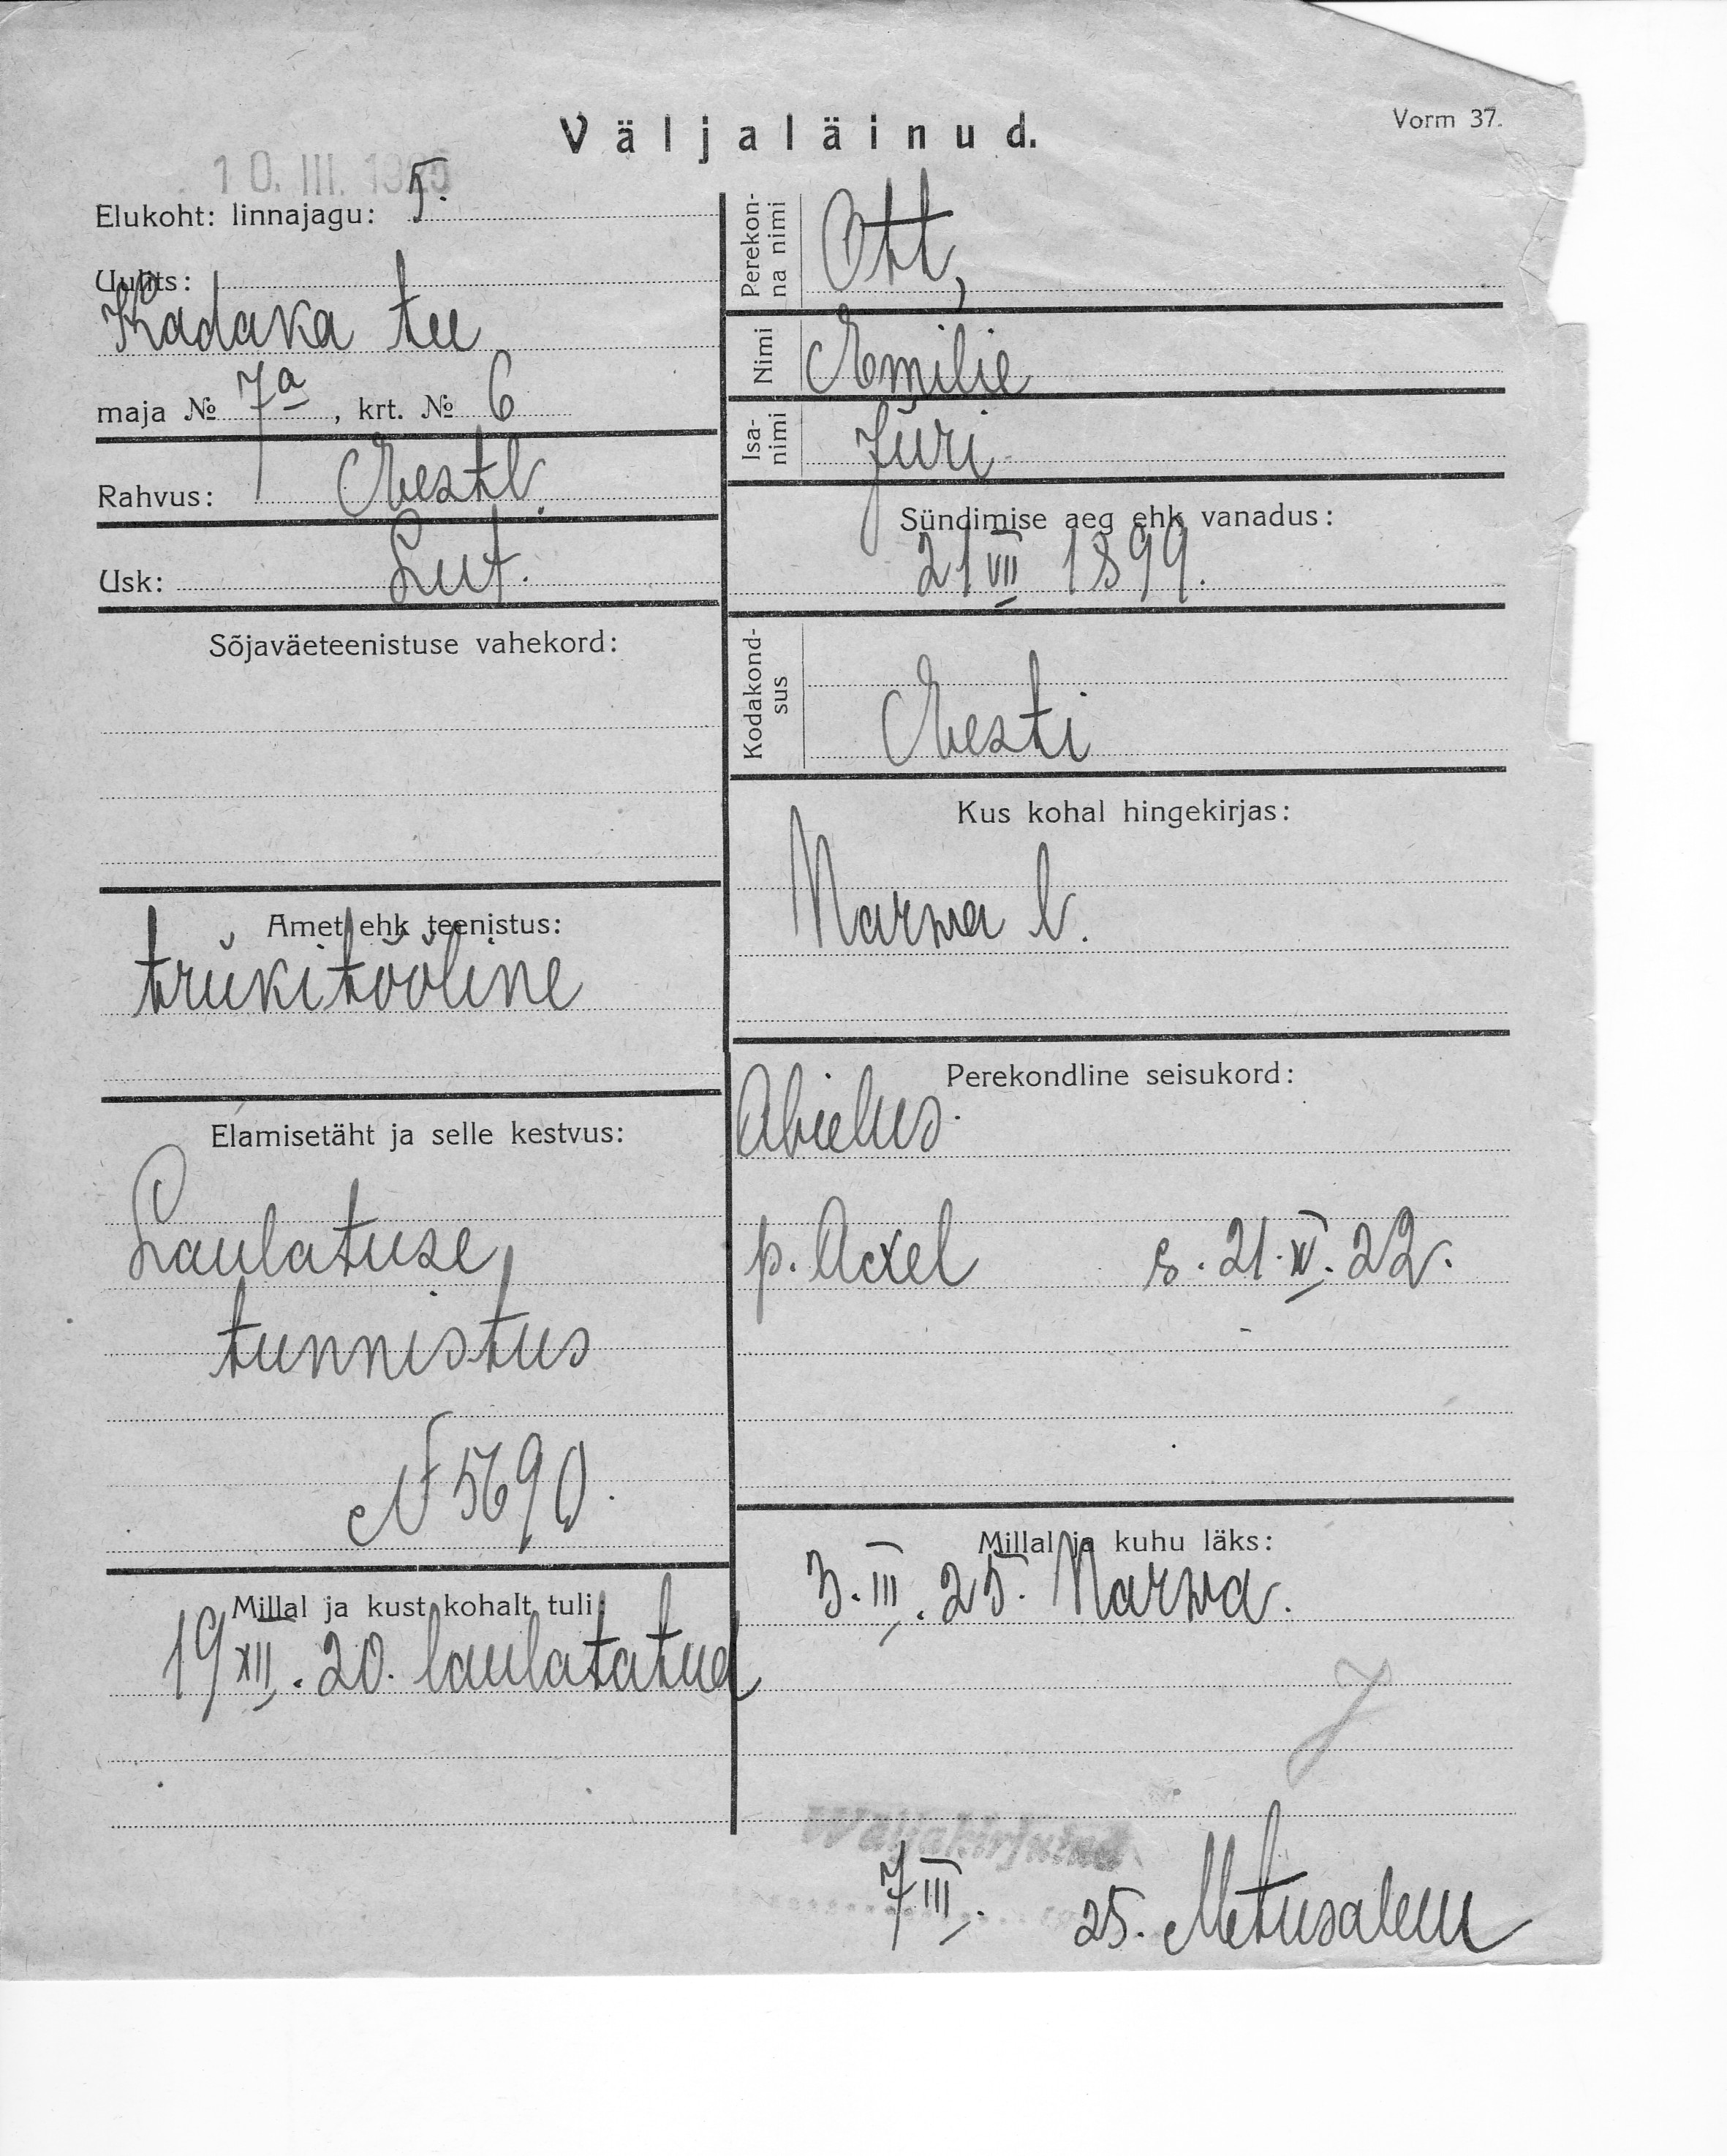 Väljaläinud.
Vorm 37.
10. III. 1925
Elukoht: linnajagu: 5.
Uulits:
Kadaka tee
maja № 7a, krt. № 6
Rahvus: Eestl.
Usk: Lut.
Sõjaväeteenistuse vahekord:
Amet ehk teenistus:
trükitööline
Elamisetäht ja selle kestvus:
Laulatuse
tunnistus
N 5690.
Millal ja kust kohalt tuli:
19 XII. 20. laulatatud
Perekonna nimi Ott,
Nimi Emilie
Isanimi Jüri
Sündimise aeg ehk vanadus:
21 VII 1899.
Kodakondsus
Eesti
Kus kohal hingekirjas:
Narwa l.
Perekondline seisukord:
Abielus.
p. Acxel s. 21. XI. 22.
Millal ja kuhu läks:
3. III. 25. Narwa.
Wäljakirjutud
7 III. 25. Metusalem